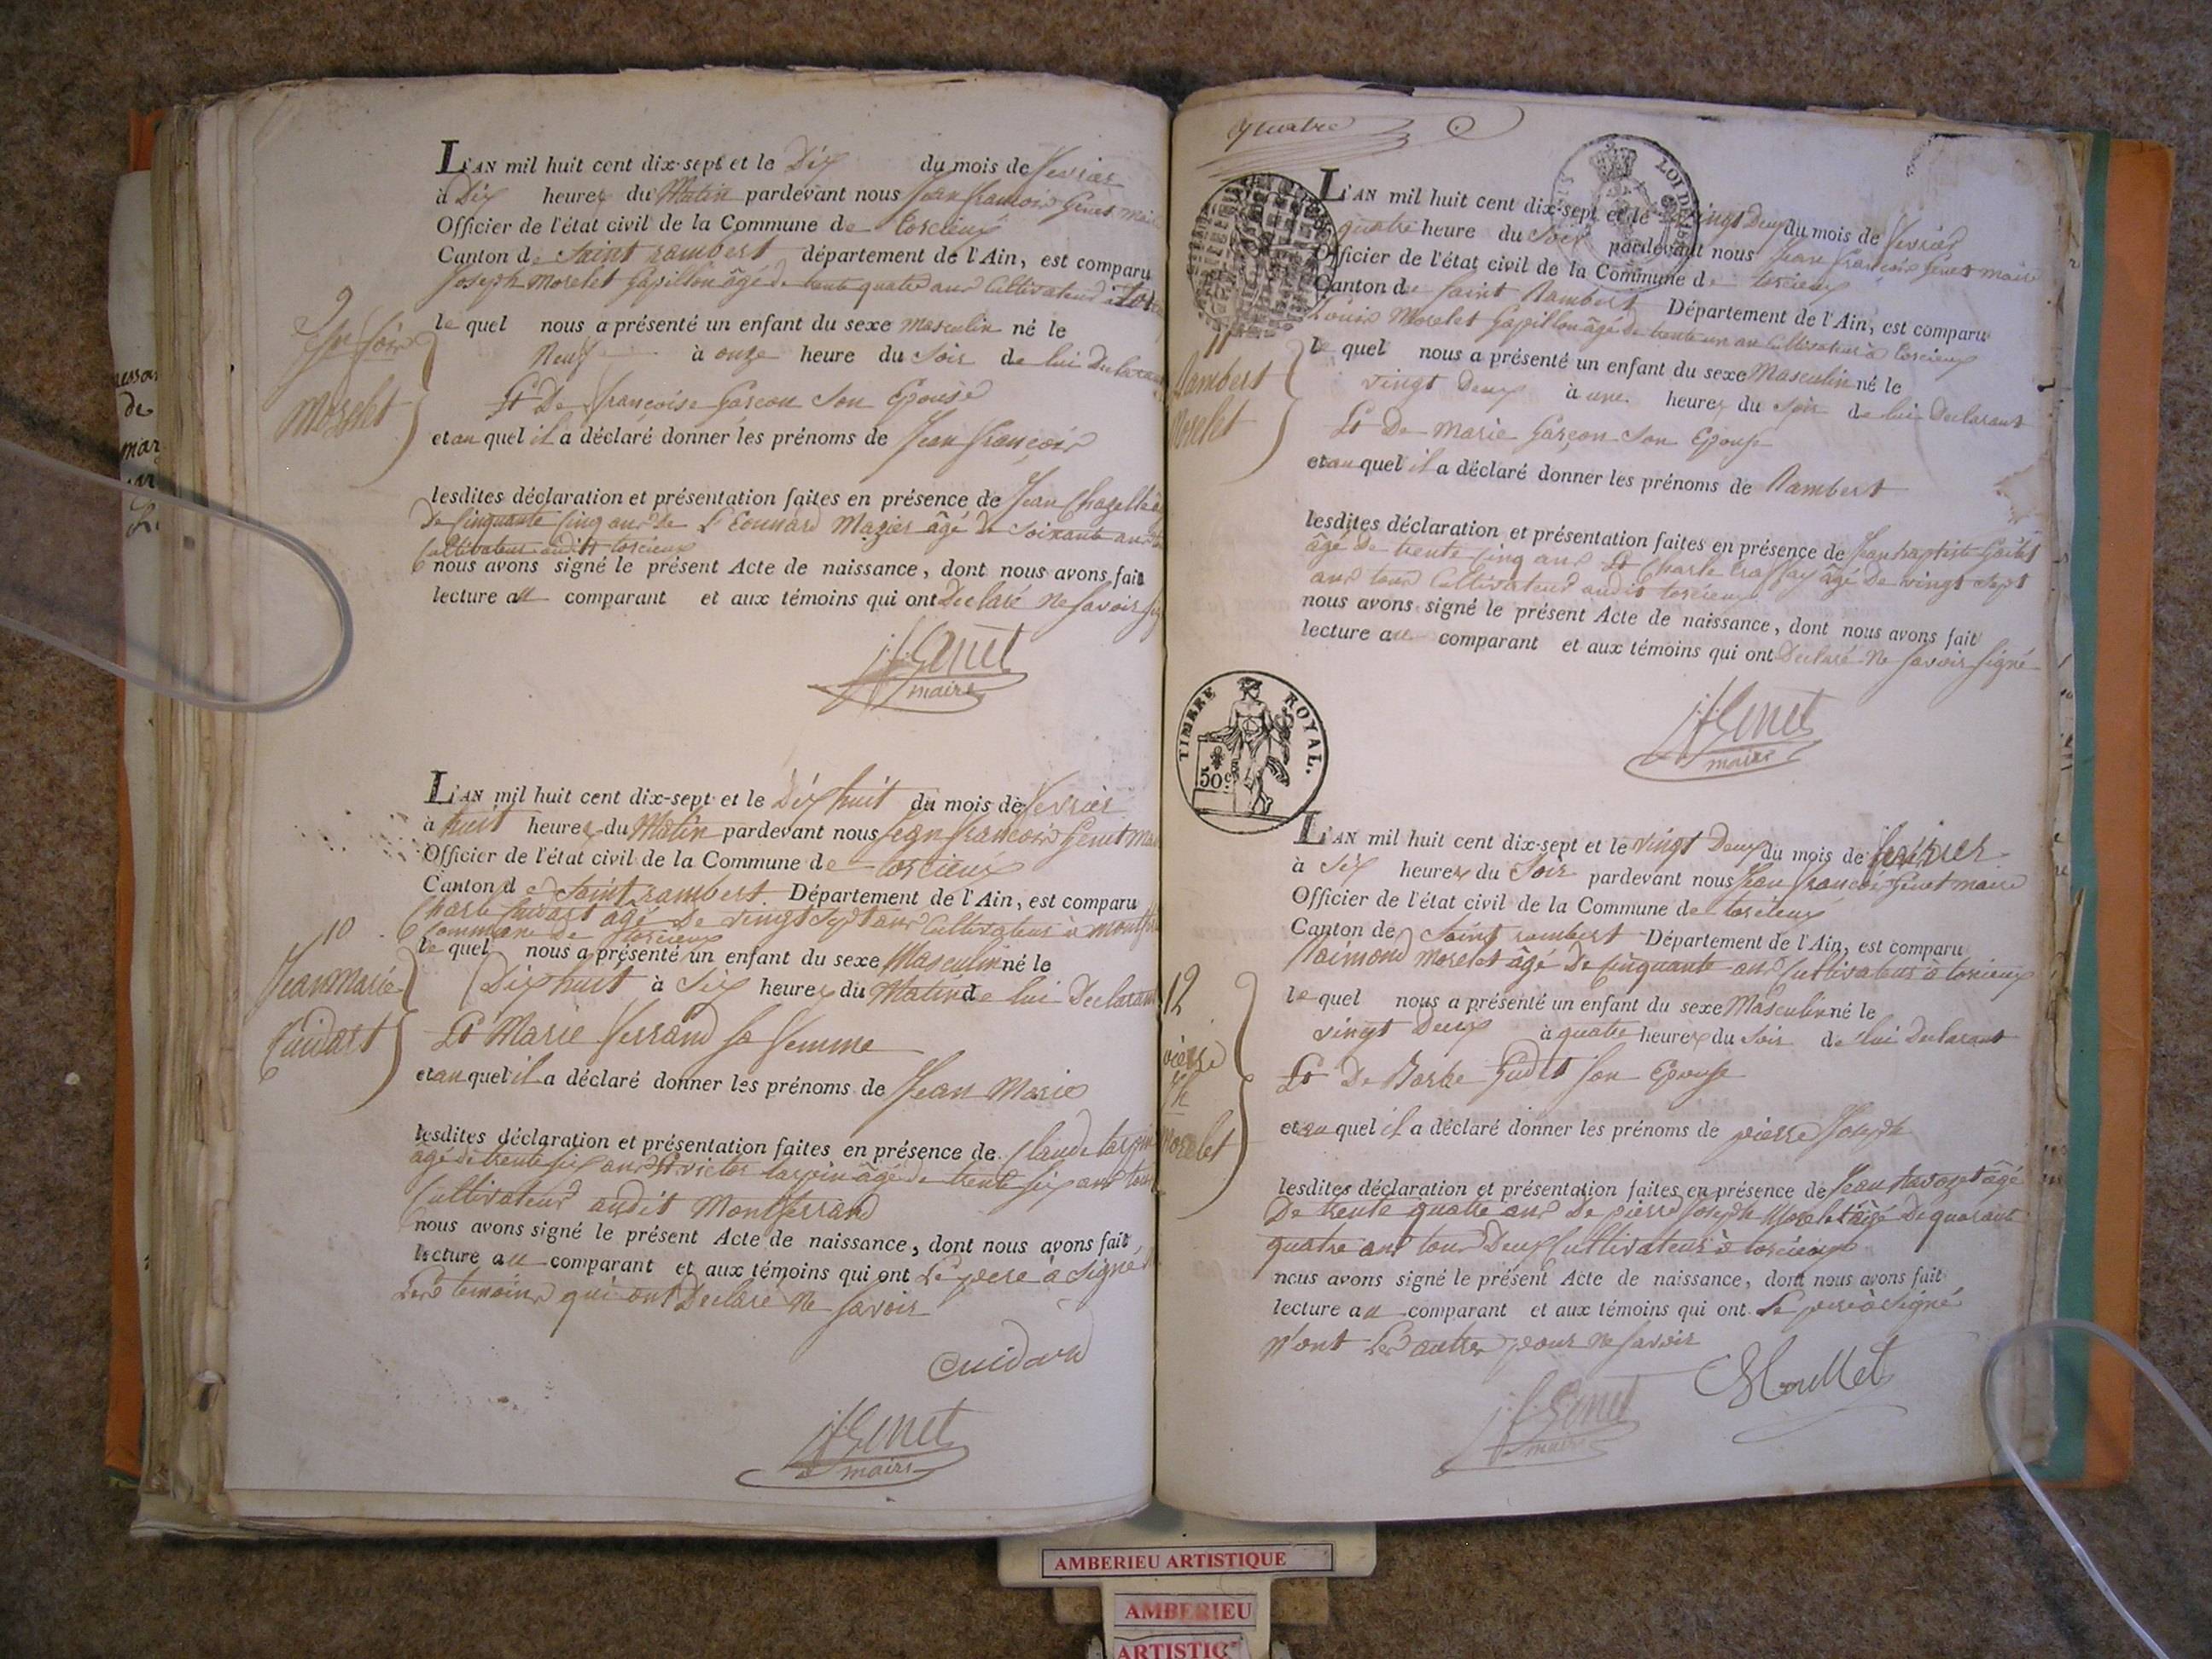 L'AN mil huit cent dix-sept et le Dix du mois de fevrier
à Dix heures du Matin pardevant nous Jean francois Genet maire
Officier de l'état civil de la Commune de torcieux
Canton de Saint rambert département de l'Ain, est comparu
Joseph Morelet Gapillon âgé de trente quatre ans Cultivateur à
9
le quel nous a présenté un enfant du sexe masculin né le
Jn fois
Neuf à onze heure du Soir de lui Declarant
Et De francoise Garcon Son Epouse
Morelet
et au quel il a déclaré donner les prénoms de Jean francois
lesdites déclaration et présentation faites en présence de Jean Chazelle
De Cinquante Cinq ans De Leonnard Mazier âgé de Soixante ans
Cultivateur audit torcieux
nous avons signé le présent Acte de naissance, dont nous avons fait
lecture au comparant et aux témoins qui ont Declaré Ne Savoir
jf Genet
maire
L'AN mil huit cent dix-sept et le Dix huit du mois de fevrier
à huit heures du Matin pardevant nous Jean francois Genet
Officier de l'état civil de la Commune de torcieux
Canton de Saint rambert. Département de l'Ain, est comparu
Charle Cuidart âgé De vingt Sept ans Cultivateur à
Commune De torcieux
10
le quel nous a présenté un enfant du sexe Masculin né le
Jean Marie
Dix huit à Six heures du Matin de lui Declarant
Cuidart
Et Marie ferrand Sa femme
et au quel il a déclaré donner les prénoms de Jean Marie
lesdites déclaration et présentation faites en présence de Claude tarpin
âgé de trente Six ans Et victor tarpin âgé de trente Six ans tous
Cultivateur audit Montferrand
nous avons signé le présent Acte de naissance, dont nous avons fait
lecture au comparant et aux témoins qui ont Le pere à Signé
Les temoins qui ont Declaré Ne Savoir
Cuidard
jf Genet
maire
quatre
LOI DE
L'AN mil huit cent dix-sept et le vingt Deux du mois de fevrier
quatre heure du Soir pardevant nous Jean francois Genet maire
Officier de l'état civil de la Commune de torcieux
Canton de Saint Rambert Département de l'Ain, est comparu
Louis Morelet Gapillon âgé de trente un an Cultivateur à torcieux
11
le quel nous a présenté un enfant du sexe Masculin né le
Rambert
vingt Deux à une heures du Soir de lui Declarant
Morelet
Et De Marie Garçon Son Epouse
et au quel il a déclaré donner les prénoms de Rambert
lesdites déclaration et présentation faites en présence de Jean baptiste
âgé De trente Cinq ans Et Charle âgé De vingt Sept
ans tous Cultivateur audit torcieux
nous avons signé le présent Acte de naissance, dont nous avons fait
lecture au comparant et aux témoins qui ont Declaré Ne Savoir Signé
jf Genet
maire
TIMBRE ROYAL.
50c
L'AN mil huit cent dix-sept et le vingt Deux du mois de fevrier
à Six heures du Soir pardevant nous Jean francois Genet maire
Officier de l'état civil de la Commune de torcieux
Canton de Saint rambert Département de l'Ain, est comparu
Raimond Morelet âgé De Cinquante ans Cultivateur à torcieux
12
le quel nous a présenté un enfant du sexe Masculin né le
vingt Deux à quatre heures du Soir de lui Declarant
pierre
Jh
Et De Barbe Gudet Son Epouse
Morelet
et au quel il a déclaré donner les prénoms de pierre Joseph
lesdites déclaration et présentation faites en présence de Jean âgé
De trente quatre ans De pierre Joseph Morelet âgé De quarante
quatre ans tous Deux Cultivateurs à torcieux
nous avons signé le présent Acte de naissance, dont nous avons fait
lecture au comparant et aux témoins qui ont Le pere à Signé
N'ont Les autres pour Ne Savoir
jf Genet
maire
AMBERIEU ARTISTIQUE
AMBERIEU